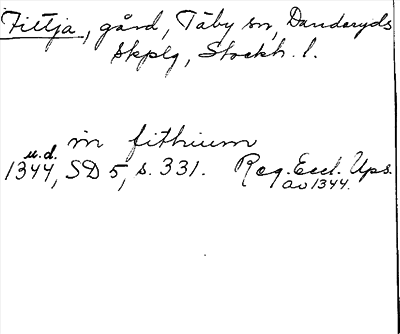 Fittja, gård, Täby sn, Danderyds
skplg, Stockh. l.
in fithium
u.d.
1344, SD 5, s. 331. Reg. Eccl. Ups.
av 1344.